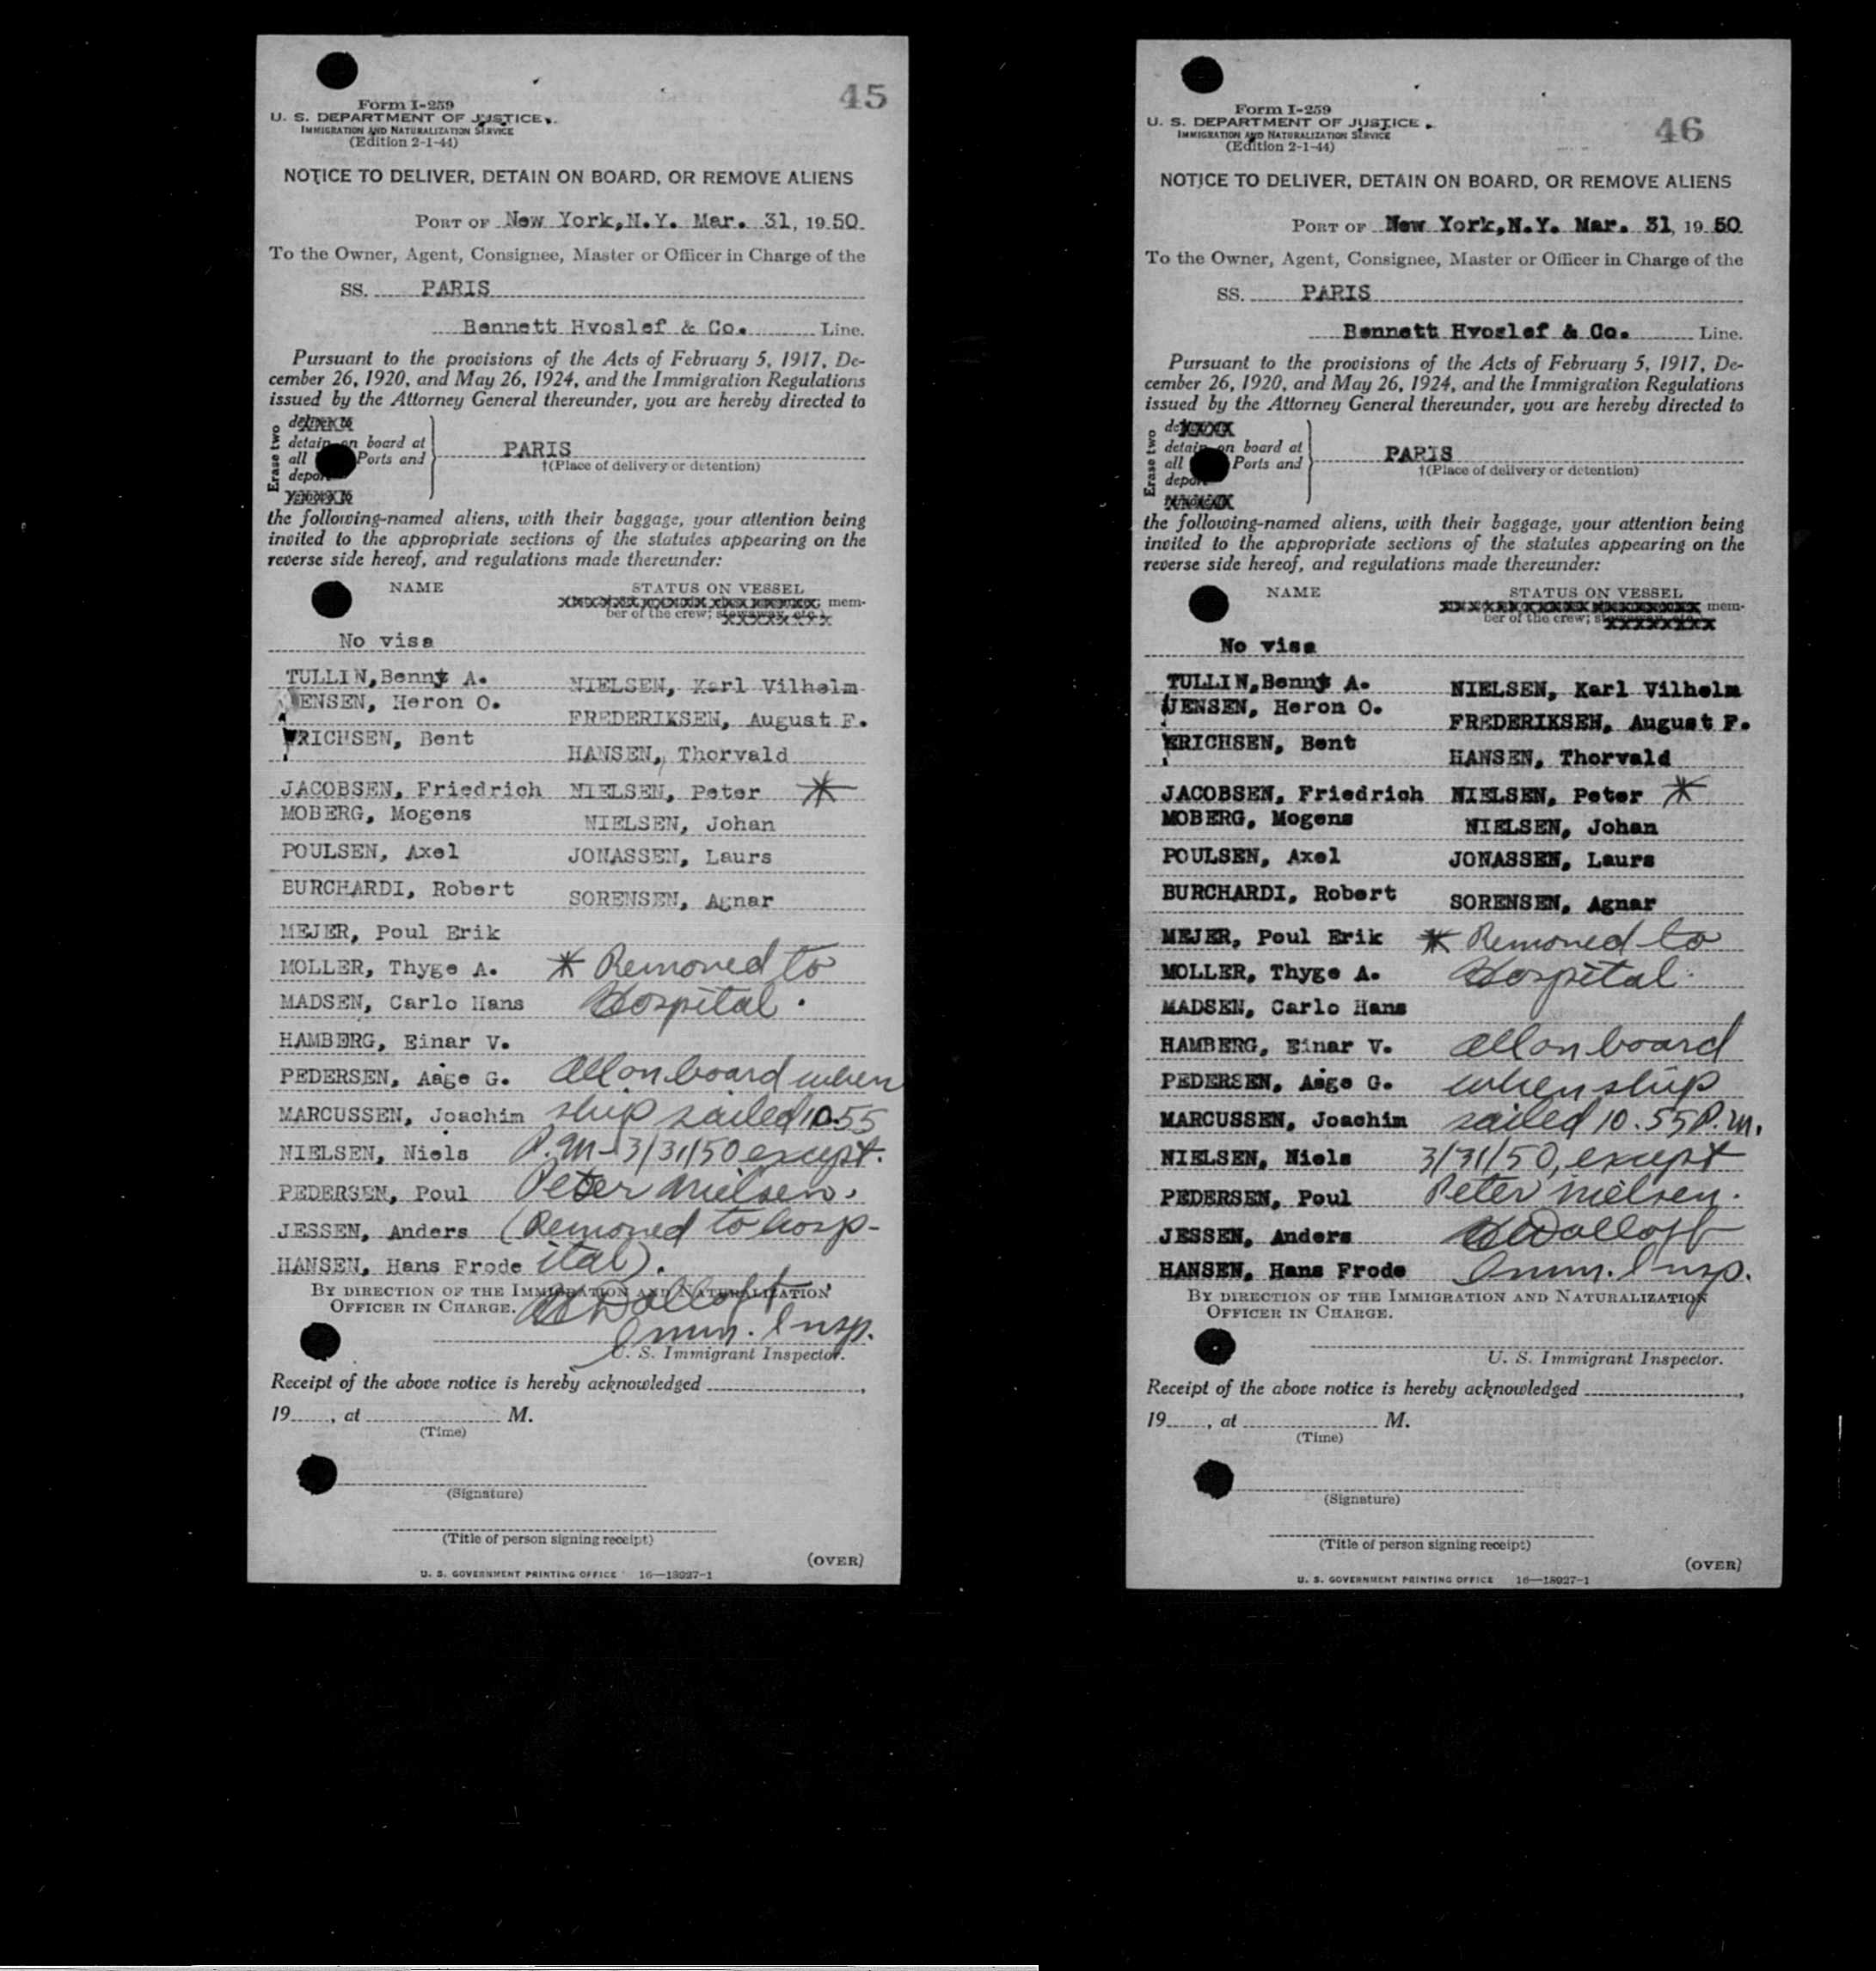 45
Form I-259
U. S. DEPARTMENT OF JUSTICE
IMMIGRATION AND NATURALIZATION SERVICE
(Edition 2-1-44)
NOTICE TO DELIVER, DETAIN ON BOARD, OR REMOVE ALIENS
PORT OF New York,N.Y. Mar. 31, 1950.
To the Owner, Agent, Consignee, Master or Officer in Charge of the
SS. PARIS
Bennett Hvoslef & Co. Line.
Pursuant to the provisions of the Acts of February 5, 1917, De-
cember 26, 1920, and May 26, 1924, and the Immigration Regulations
issued by the Attorney General thereunder, you are hereby directed to
Erase two
detain on board at
all Ports and
PARIS
†(Place of delivery or detention)
the following-named aliens, with their baggage, your attention being
invited to the appropriate sections of the statutes appearing on the
reverse side hereof, and regulations made thereunder:
NAME STATUS ON VESSEL
mem-
ber of the crew;
No visa
TULLIN,Benny A. NIELSEN, Karl Vilhelm
JENSEN, Heron O. FREDERIKSEN, August F.
ERICHSEN, Bent HANSEN, Thorvald
JACOBSEN, Friedrich NIELSEN, Peter *
MOBERG, Mogens NIELSEN, Johan
POULSEN, Axel JONASSEN, Laurs
BURCHARDI, Robert SORENSEN, Agnar
MEJER, Poul Erik
MOLLER, Thyge A. * Removed to
MADSEN, Carlo Hans Hospital.
HAMBERG, Einar V.
PEDERSEN, Aage G. all on board when
MARCUSSEN, Joachim ship sailed 10.55
NIELSEN, Niels P.M - 3/31/50 except.
PEDERSEN, Poul Peter Nielsen.
JESSEN, Anders (Removed to hosp-
HANSEN, Hans Frode ital).
BY DIRECTION OF THE IMMIGRATION AND NATURALIZATION
OFFICER IN CHARGE.
Imm. Insp.
U. S. Immigrant Inspector.
Receipt of the above notice is hereby acknowledged ,
19 , at M.
(Time)
(Signature)
(Title of person signing receipt)
(OVER)
U. S. GOVERNMENT PRINTING OFFICE 16—18927-1
46
Form I-259
U. S. DEPARTMENT OF JUSTICE
IMMIGRATION AND NATURALIZATION SERVICE
(Edition 2-1-44)
NOTICE TO DELIVER, DETAIN ON BOARD, OR REMOVE ALIENS
PORT OF New York,N.Y. Mar. 31, 19 50
To the Owner, Agent, Consignee, Master or Officer in Charge of the
SS. PARIS
Bennett Hvoslef & Co. Line.
Pursuant to the provisions of the Acts of February 5, 1917, De-
cember 26, 1920, and May 26, 1924, and the Immigration Regulations
issued by the Attorney General thereunder, you are hereby directed to
Erase two
detain on board at
all Ports and
PARIS
†(Place of delivery or detention)
the following-named aliens, with their baggage, your attention being
invited to the appropriate sections of the statutes appearing on the
reverse side hereof, and regulations made thereunder:
NAME STATUS ON VESSEL
mem-
ber of the crew;
No visa
TULLIN,Benny A. NIELSEN, Karl Vilhelm
JENSEN, Heron O. FREDERIKSEN, August F.
ERICHSEN, Bent HANSEN, Thorvald
JACOBSEN, Friedrich NIELSEN, Peter *
MOBERG, Mogens NIELSEN, Johan
POULSEN, Axel JONASSEN, Laurs
BURCHARDI, Robert SORENSEN, Agnar
MEJER, Poul Erik * Removed to
MOLLER, Thyge A. Hospital.
MADSEN, Carlo Hans
HAMBERG, Einar V. all on board
PEDERSEN, Aage G. when ship
MARCUSSEN, Joachim sailed 10.55 P.M.
NIELSEN, Niels 3/31/50, except
PEDERSEN, Poul Peter Nielsen.
JESSEN, Anders
HANSEN, Hans Frode Imm. Insp.
BY DIRECTION OF THE IMMIGRATION AND NATURALIZATION
OFFICER IN CHARGE.
U. S. Immigrant Inspector.
Receipt of the above notice is hereby acknowledged ,
19 , at M.
(Time)
(Signature)
(Title of person signing receipt)
(OVER)
U. S. GOVERNMENT PRINTING OFFICE 16—18927-1